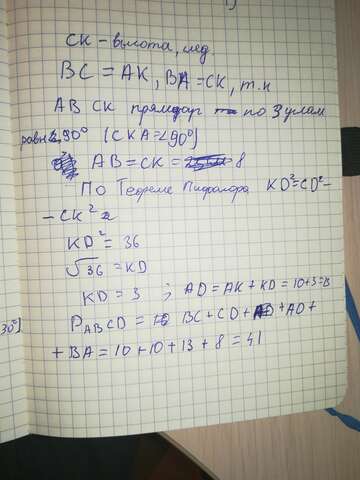 СК - высота, след.
BC = AK, BA = CK, т.к
ABCK прямоуг по 3 углам
равн 90° (CKA = ∠90°)
AB = CK = 8
По Теореме Пифагора KD² = CD² -
- CK²
KD² = 36
√36 = KD
KD = 3 ; AD = AK + KD = 10+3=13
P ABCD = BC + CD + AD +
+ BA = 10 + 10 + 13 + 8 = 41
30°]